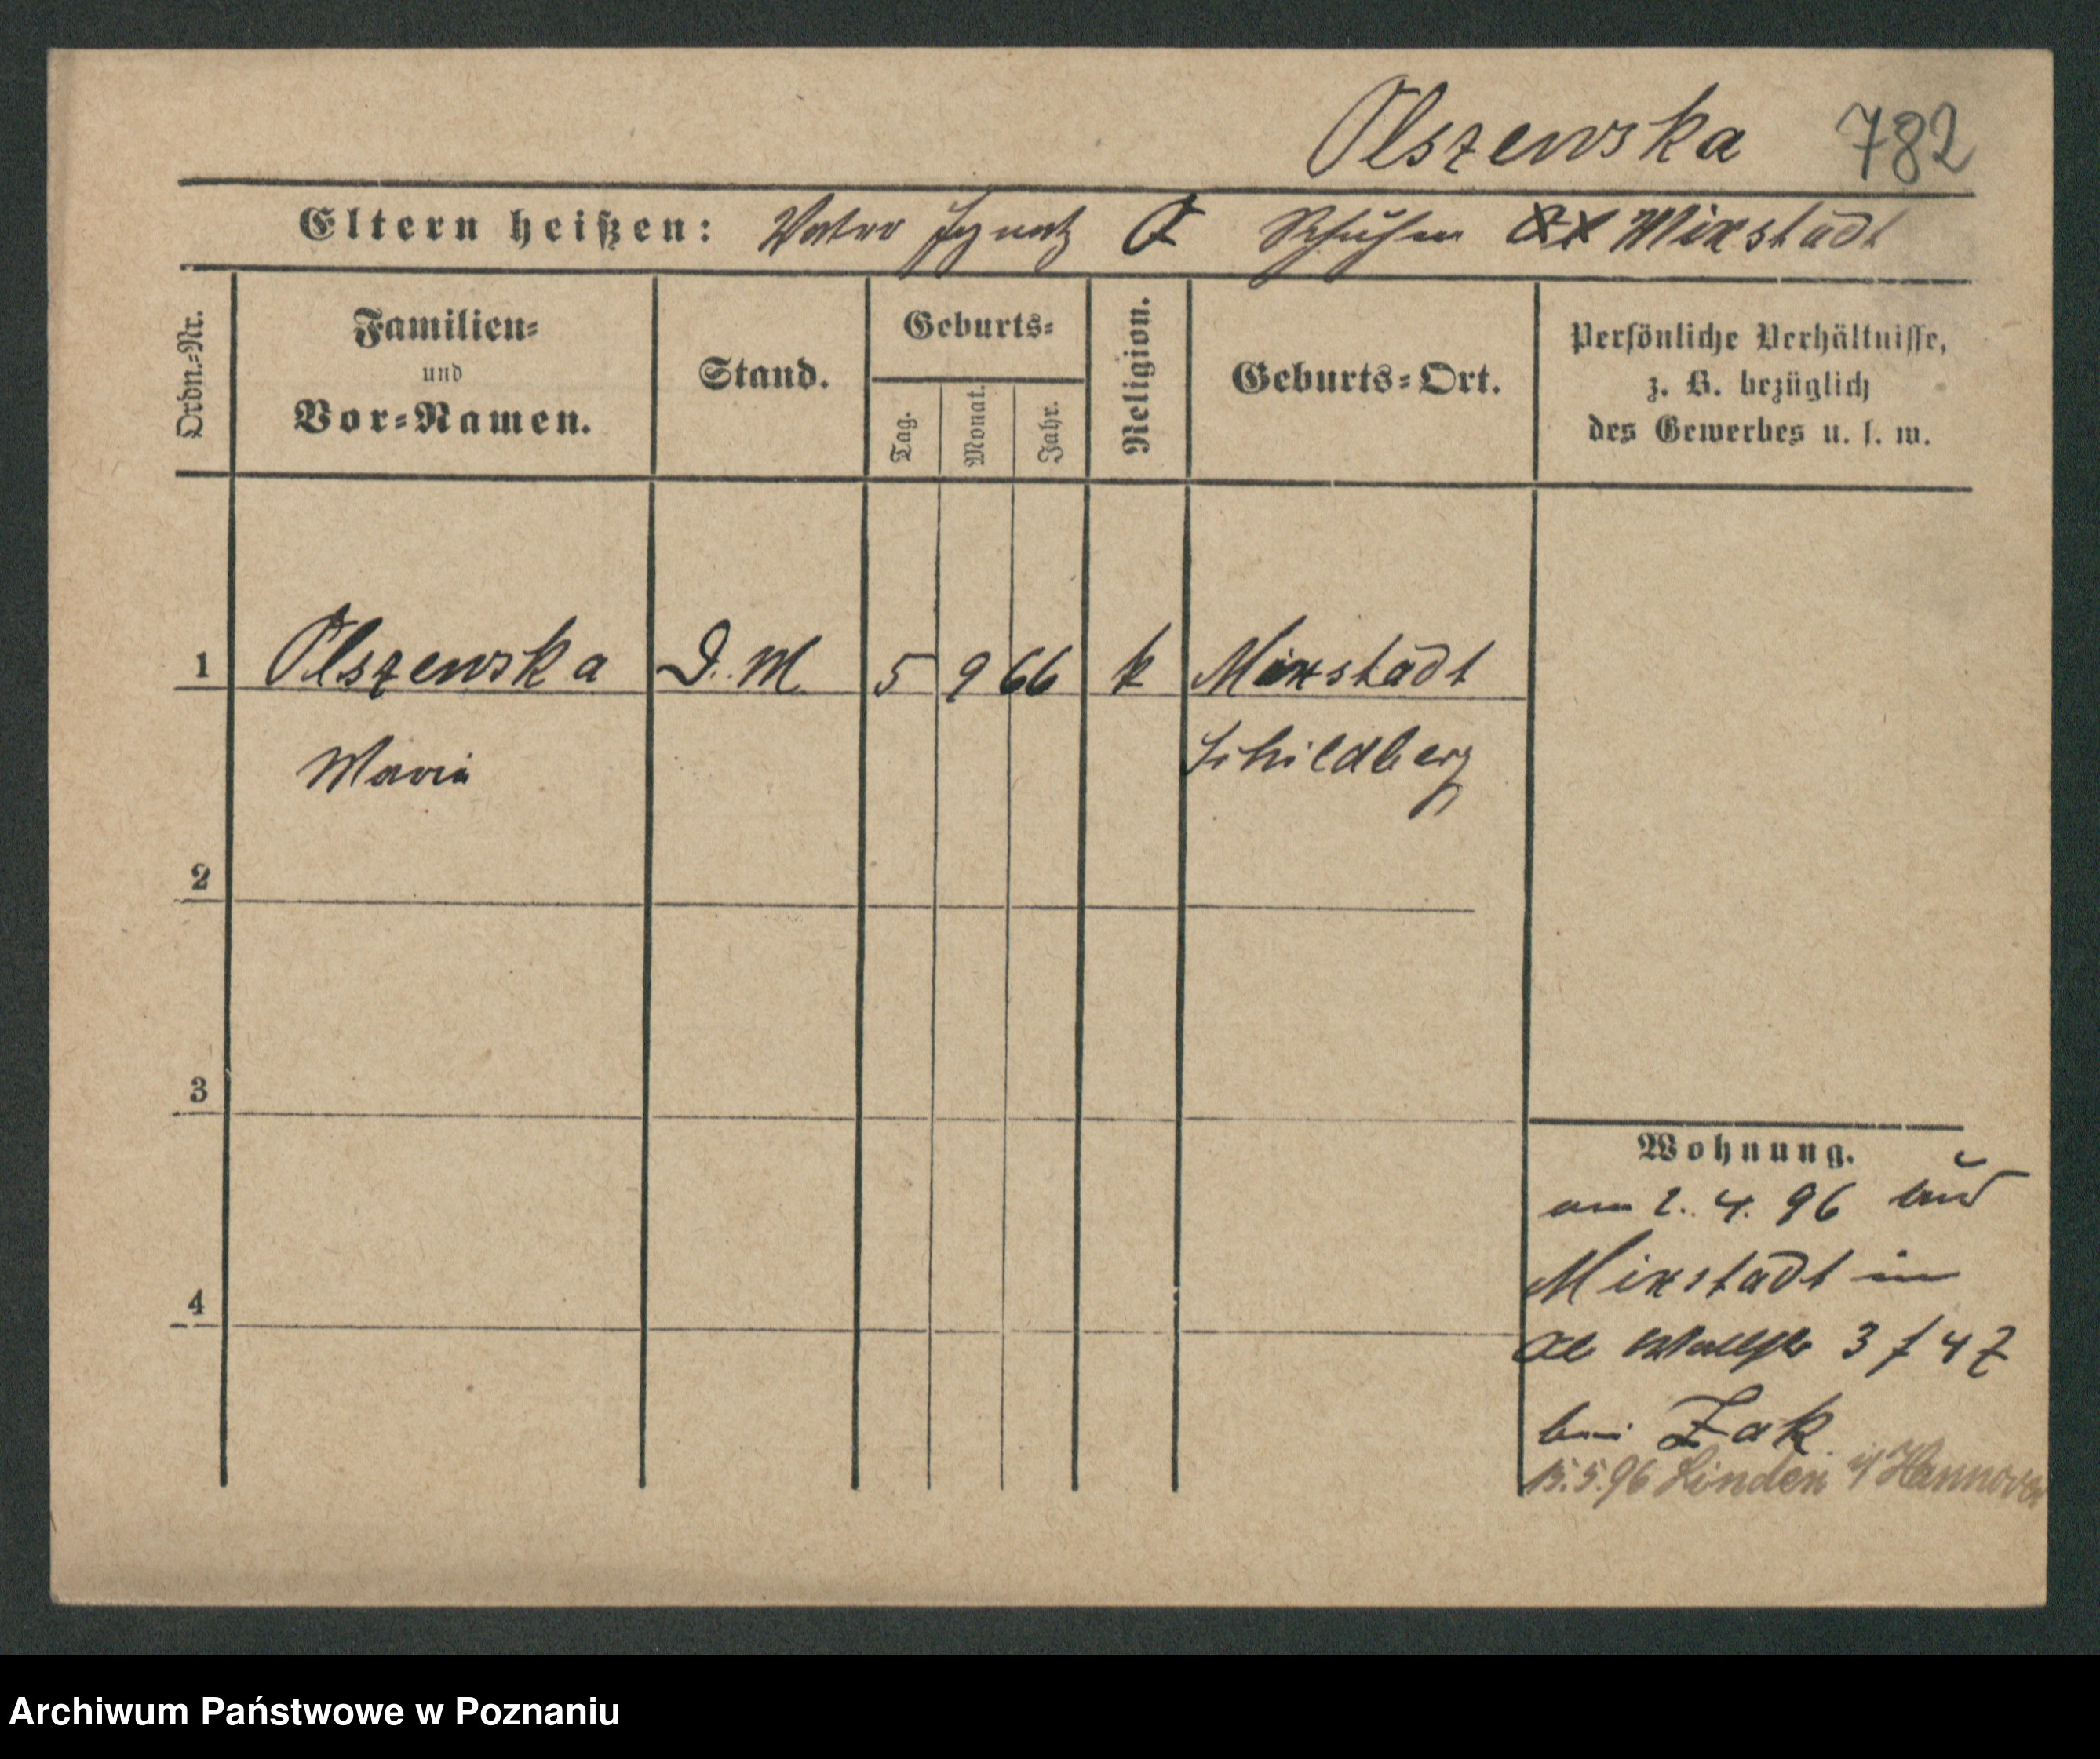 Olszewska 782
Eltern heißen: Vater Ignatz Mixstadt
Ordn.-Nr.
Familien-
und
Vor-Namen.
Stand.
Geburts-
Tag.
Monat.
Jahr.
Religion.
Geburts-Ort.
Persönliche Verhältnisse,
z. B. bezüglich
des Gewerbes u. s. w.
1 Olszewska D. M. 5 9 66 k Mixstadt
Maria Schildberg
2
3
4
Wohnung.
am 2. 4. 96 aus
Mixstadt in
3 f 4 Z
bei Zak
15.5.96 Linden i/ Hannover
Archiwum Państwowe w Poznaniu